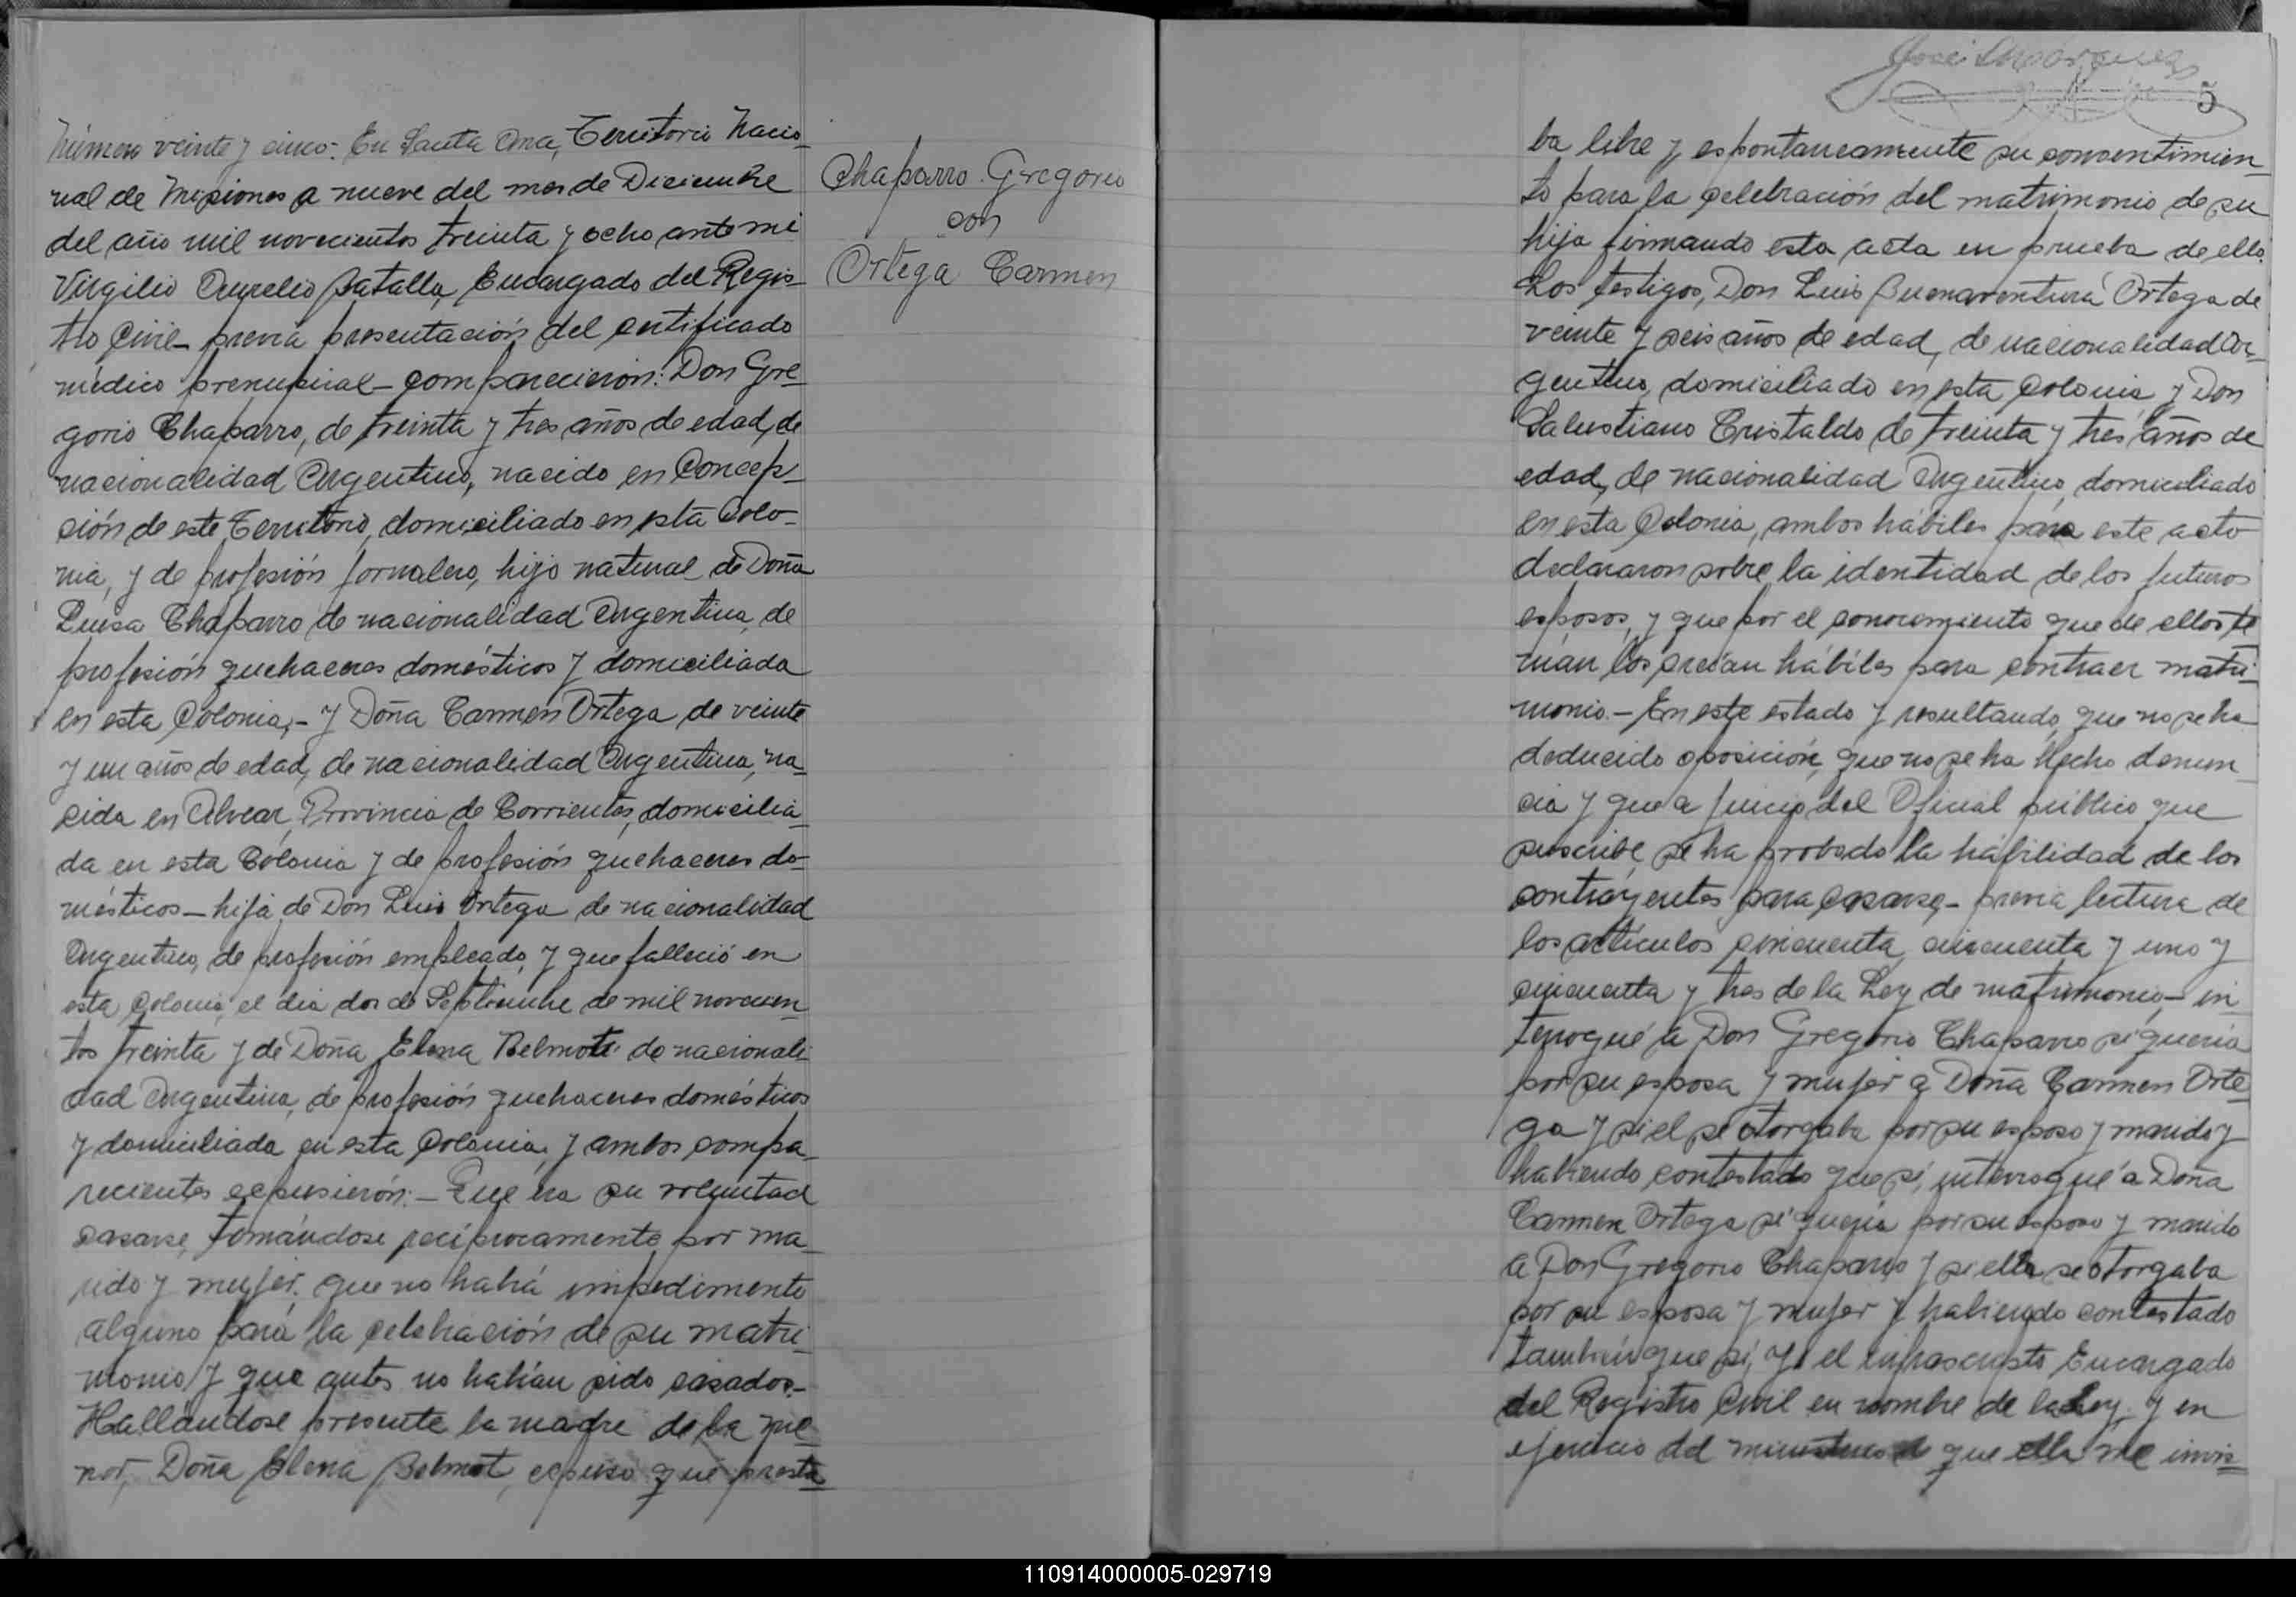 Número veinte y cinco: En Santa Ana, Territorio Nacio-
nal de Misiones a nueve del mes de Diciembre
del año mil novecientos treinta y ocho ante mi
Virgilio Aurelio Batalla, Encargado del Regis-
tro Civil - previa presentación del certificado
médico prenupcial - comparecieron: Don Gre-
gorio Chaparro, de treinta y tres años de edad, de
nacionalidad Argentino, nacido en Concep-
ción de este Territorio, domiciliado en esta Colo-
nia, y de profesión jornalero, hijo natural de Doña
Luisa Chaparro de nacionalidad Argentina, de
profesión quehaceres domésticos y domiciliada
en esta Colonia; - y Doña Carmen Ortega de veinte
y un años de edad, de nacionalidad Argentina, na-
cida en Alvear, Provincia de Corrientes, domicilia-
da en esta Colonia y de profesión quehaceres do-
mésticos - hija de Don Luis Ortega de nacionalidad
Argentino, de profesión empleado, y que falleció en
esta Colonia, el dia dos de Septiembre de mil novecien-
tos treinta y de Doña Elena Belmont de nacionali-
dad Argentina, de profesión quehaceres domésticos
y domiciliada en esta Colonia, y ambos compa-
recientes expusierón: - Que era su voluntad
casarse, tomándose recíprocamente por ma-
rido y mujer, que no habia impedimento
alguno para la celebración de su matri-
monio y que antes no habían sido casados. -
Hallándose presente la madre de la me-
nor, Doña Elena Belmont, expuso que presta-
Chaparro Gregorio
con
Ortega Carmen
José
5
ba libre y espontaneamente su consentimien-
to para la celebración del matrimonio de su
hija firmando esta acta en prueba de ello.
Los testigos, Don Luis Buenaventura Ortega de
veinte y seis años de edad, de nacionalidad Ar-
gentino, domiciliado en esta Colonia y Don
Salustiano Cristaldo de treinta y tres años de
edad, de nacionalidad Argentino domiciliado
en esta Colonia, ambos hábiles para este acto
declararon sobre la identidad de los futuros
esposos, y que por el conocimiento que de ellos te
nían los creían hábiles para contraer matri-
monio. - En este estado y resultando que no se ha
deducido oposición, que no se ha hecho denun-
cia y que a juicio del Oficial público que
suscribe, se ha probado la habilidad de los
contrayentes para casarse, - previa lectura de
los artículos cincuenta, cincuenta y uno y
cincuenta y tres de la Ley de matrimonio, - in
terrogué a Don Gregorio Chaparro si quería
por su esposa y mujer a Doña Carmen Orte-
ga y si el se otorgaba por su esposo y marido y
habiendo contestado que sí, interrogué a Doña
Carmen Ortega si quería por su esposo y marido
a Don Gregorio Chaparro y si ella se otorgaba
por su esposa y mujer y habiendo contestado
también que sí, Yo el infrascripto Encargado
del Registro Civil en nombre de la Ley, y en
ejercicio del ministerio de que ella me invis-
110914000005-029719